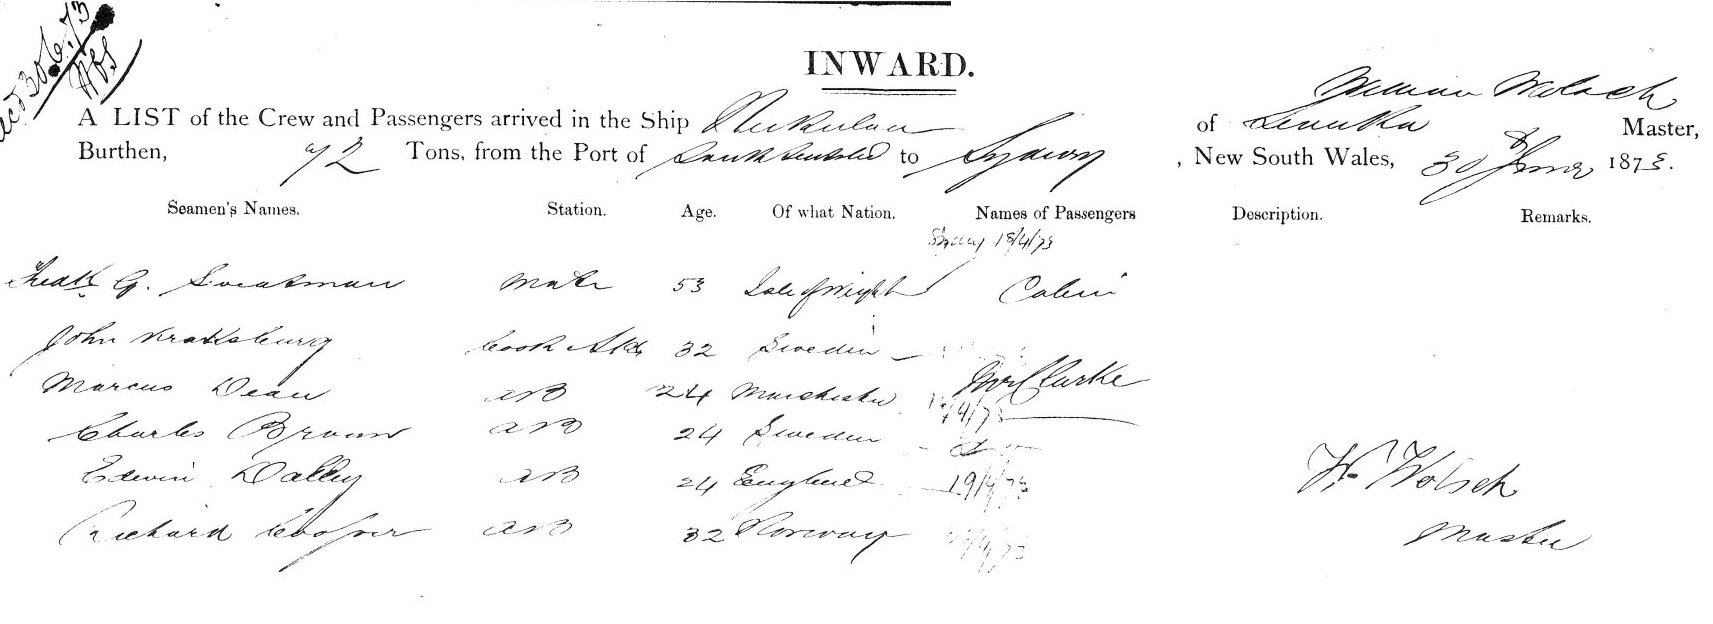 30.6.73
INWARD.
A LIST of the Crew and Passengers arrived in the Ship Nukulau of Levuka William Wolsch Master,
Burthen, 72 Tons, from the Port of to Sydney, New South Wales, 30th June 1873.
Seamen's Names. Station. Age. Of what Nation. Names of Passengers Description. Remarks.
Sydney 18/4/73
Fredk G. Sweatman Mate 53 Isle of Wight Cabin
John Cook & Std 32 Sweden
Marcus Dean AB 24 Manchester Mr Clarke
Charles Brown AB 24 Sweden
Edwin Dalley AB 24 England 19/4/73
Richard Cooper AB 32 Norway
W. Wolsch
Master